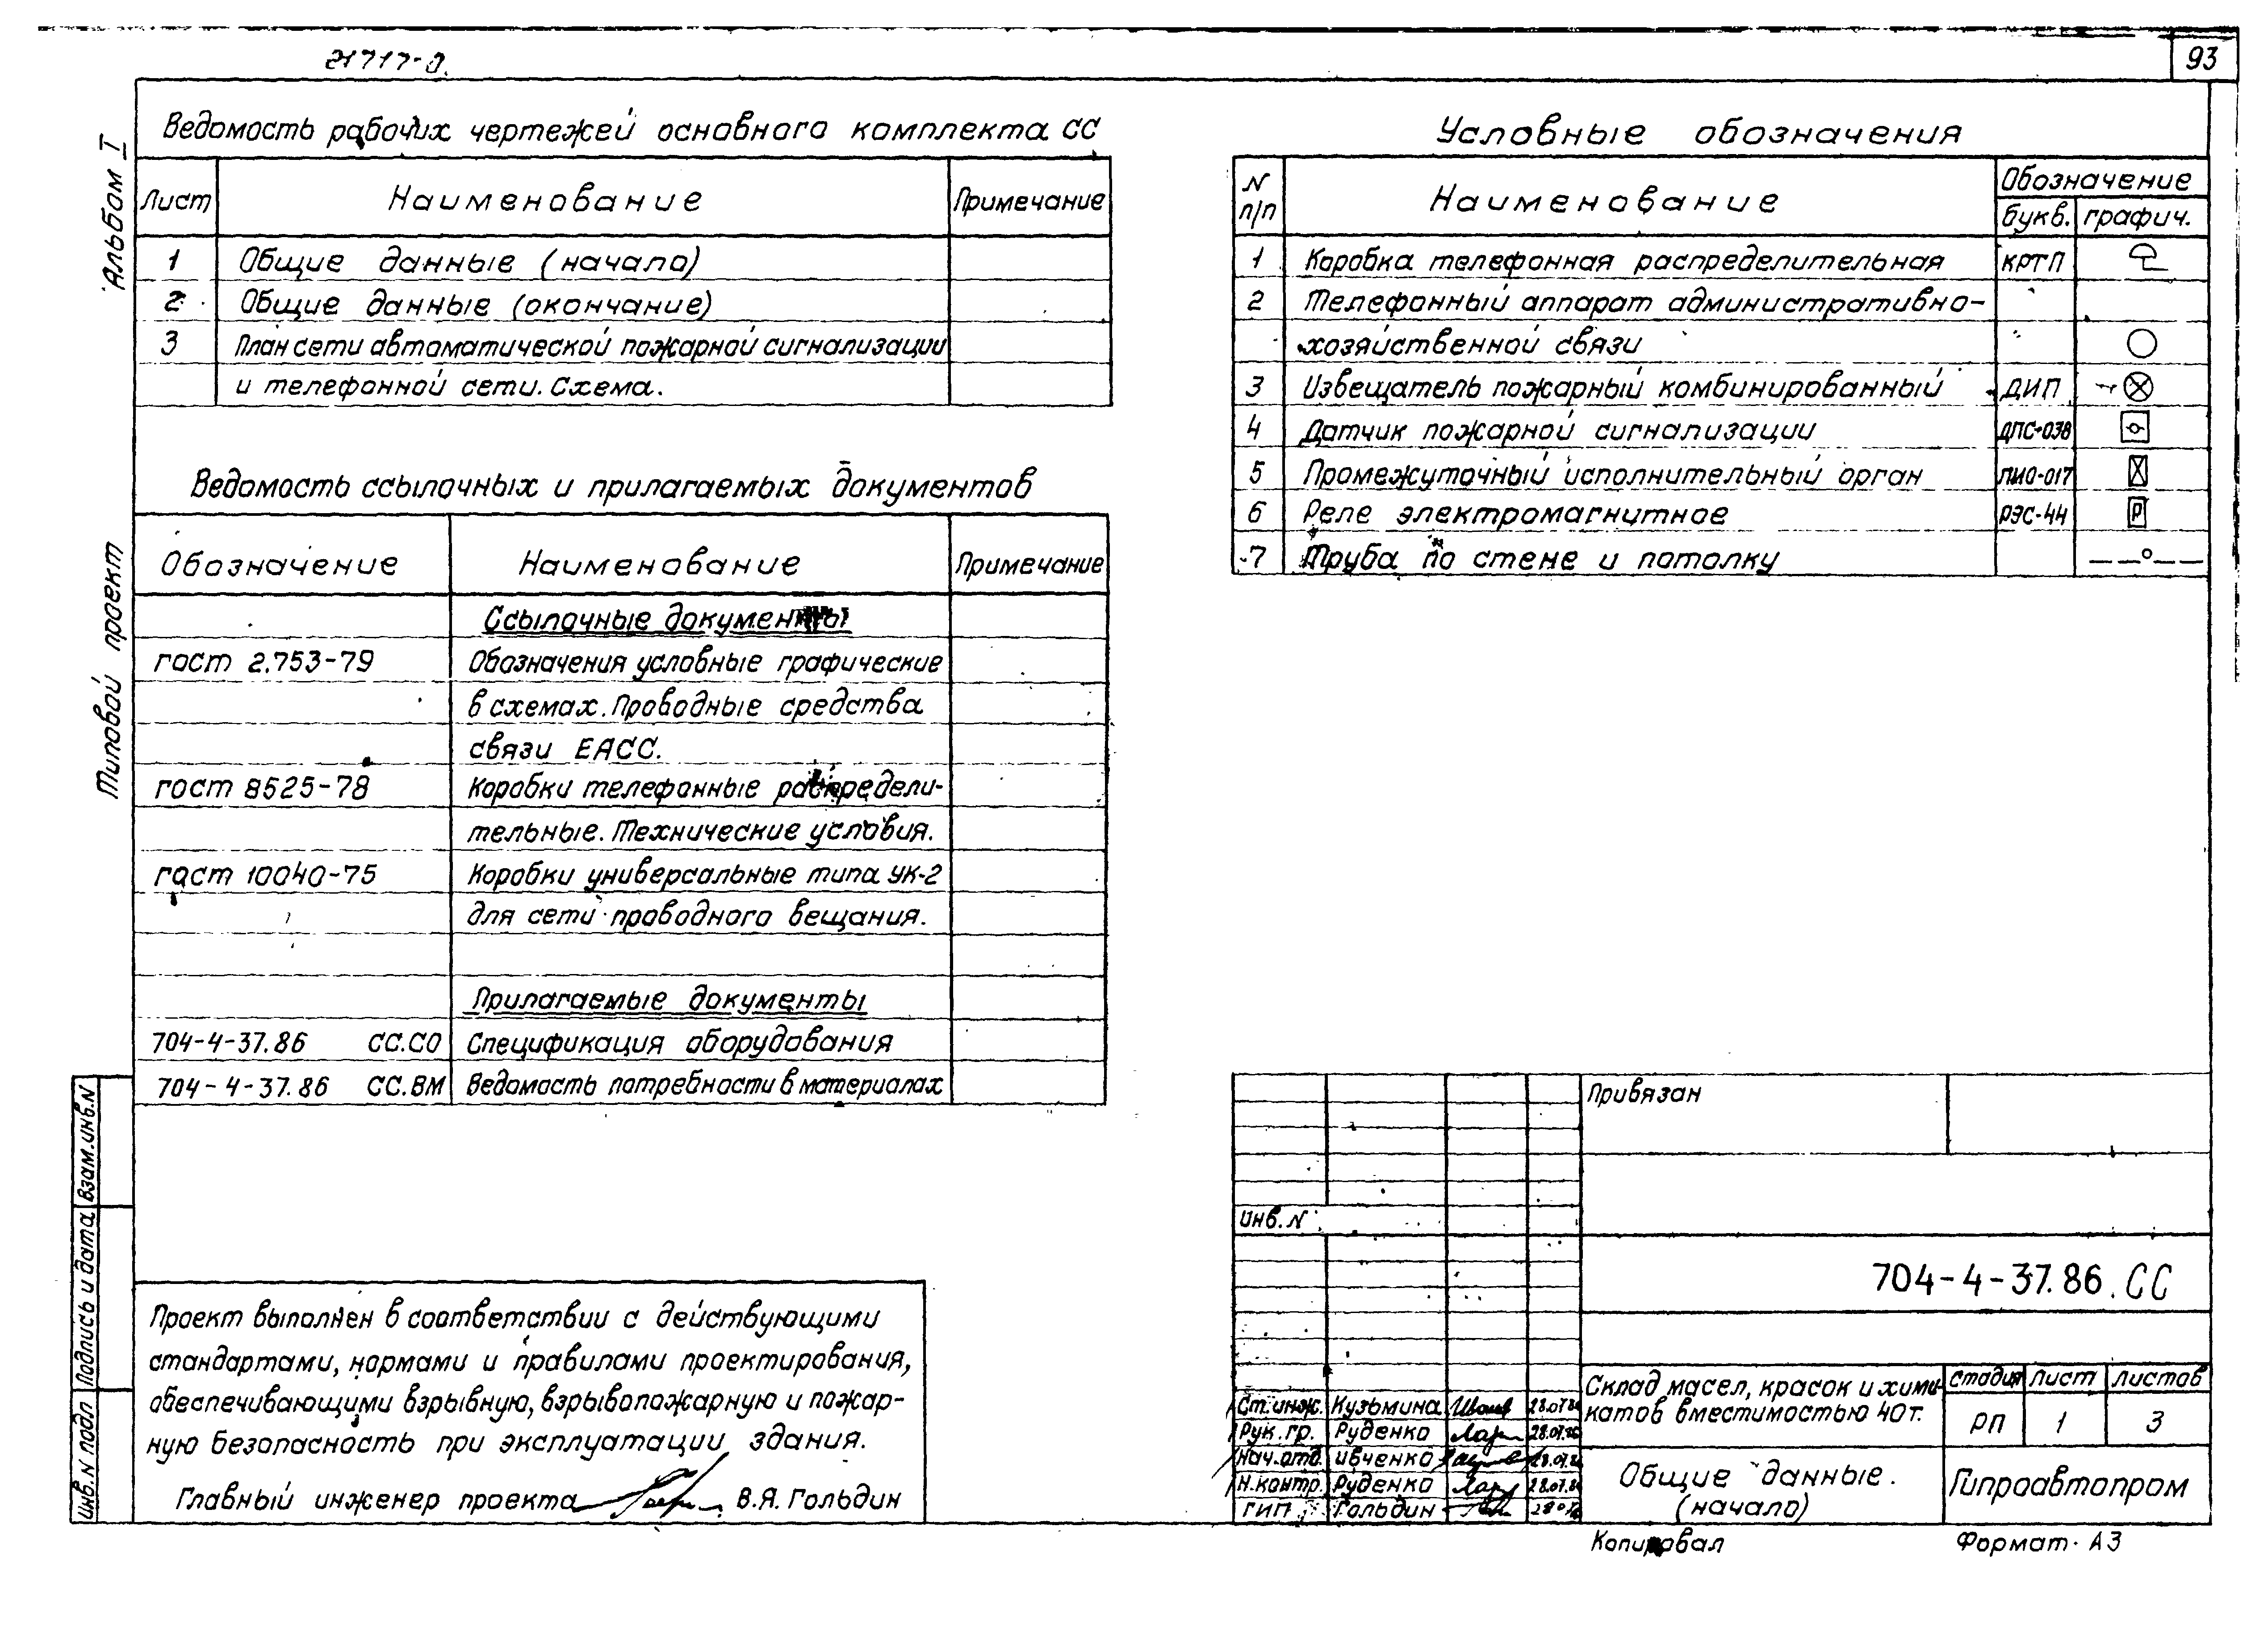 21717-0.
93
Альбом I
Типовой проект
Ведомость рабочих чертежей основного комплекта СС
Лист Наименование Примечание
1 Общие данные (начало)
2 Общие данные (окончание)
3 План сети автоматической пожарной сигнализации
и телефонной сети. Схема.
Ведомость ссылочных и прилагаемых документов
Обозначение Наименование Примечание
Ссылочные документы
гост 2.753-79 Обозначения условные графические
в схемах. Проводные средства
связи ЕАСС.
гост 8525-78 Коробки телефонные распредели-
тельные. Технические условия.
гост 10040-75 Коробки универсальные типа УК-2
для сети проводного вещания.
Прилагаемые документы
704-4-37.86 СС.СО Спецификация оборудования
704-4-37.86 СС.ВМ Ведомость потребности в материалах
Условные обозначения
N п/п Наименование Обозначение
букв. графич.
1 Коробка телефонная распределительная КРТП
2 Телефонный аппарат административно-
хозяйственной связи
3 Извещатель пожарный комбинированный ДИП
4 Датчик пожарной сигнализации ДПС-038
5 Промежуточный исполнительный орган ПИО-017
6 Реле электромагнитное РЭС-44 Р
7 Труба по стене и потолку
Проект выполнен в соответствии с действующими
стандартами, нормами и правилами проектирования,
обеспечивающими взрывную, взрывопожарную и пожар-
ную безопасность при эксплуатации здания.
Главный инженер проекта В.Я. Гольдин
Взам. инв. N
Подпись и дата
Инв. N подл
Привязан
Инв. N
704-4-37.86.СС
Склад масел, красок и хими-
катов вместимостью 40т.
стадия лист листов
РП 1 3
Ст. инж. Кузьмина
Рук. гр. Руденко
Нач. отд. Ивченко
Н. контр. Руденко
ГИП Гольдин
Общие данные.
(начало)
Гипроавтопром
Копировал
Формат А3